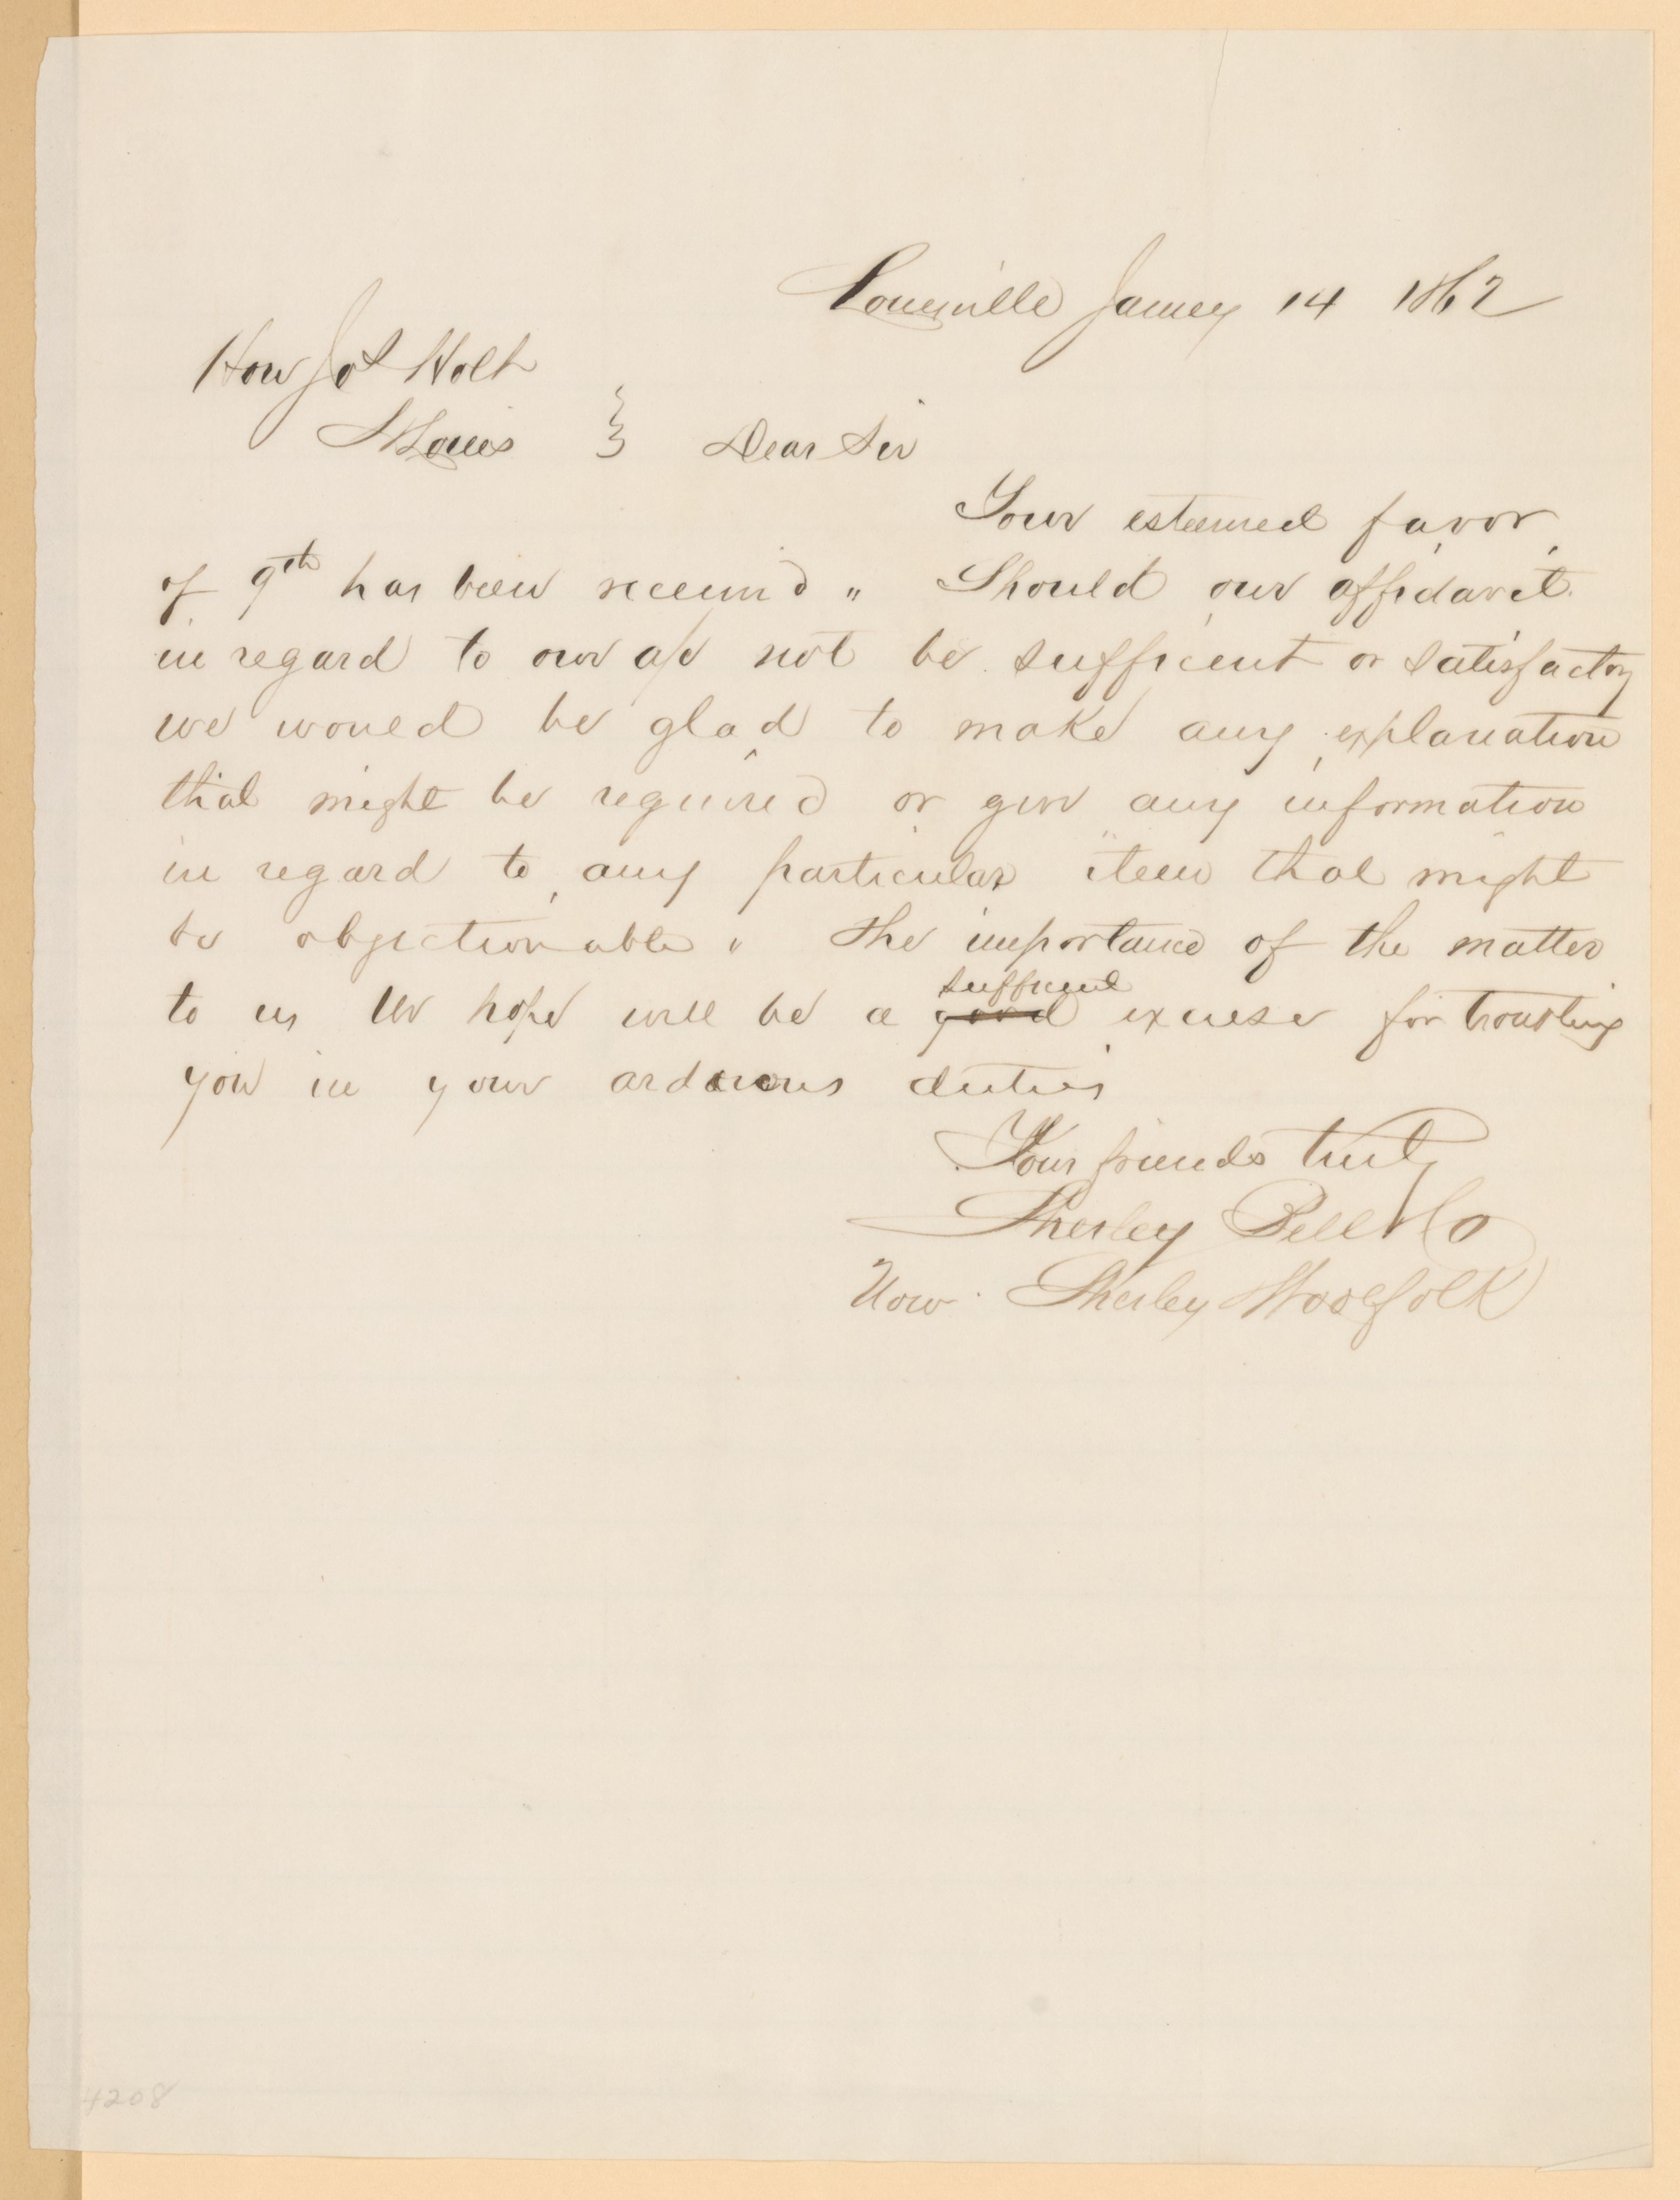 Louisville Janey 14 1862
Hon Jos Holt
St Louis } Dear Sir
Your esteemed favor
of 9th has been received " Should our affidavit
in regard to our a/c not be sufficient or satisfactory
we would be glad to make any explanation
that might be required or give any information
in regard to any particular item that might
be objectionable " The importance of the matter
to us We hope will be a good sufficient excuse for troubling
you in your arduous duties
Your friends truly
Sherley Bell & Co
Now Sherley Woolfolk
4208